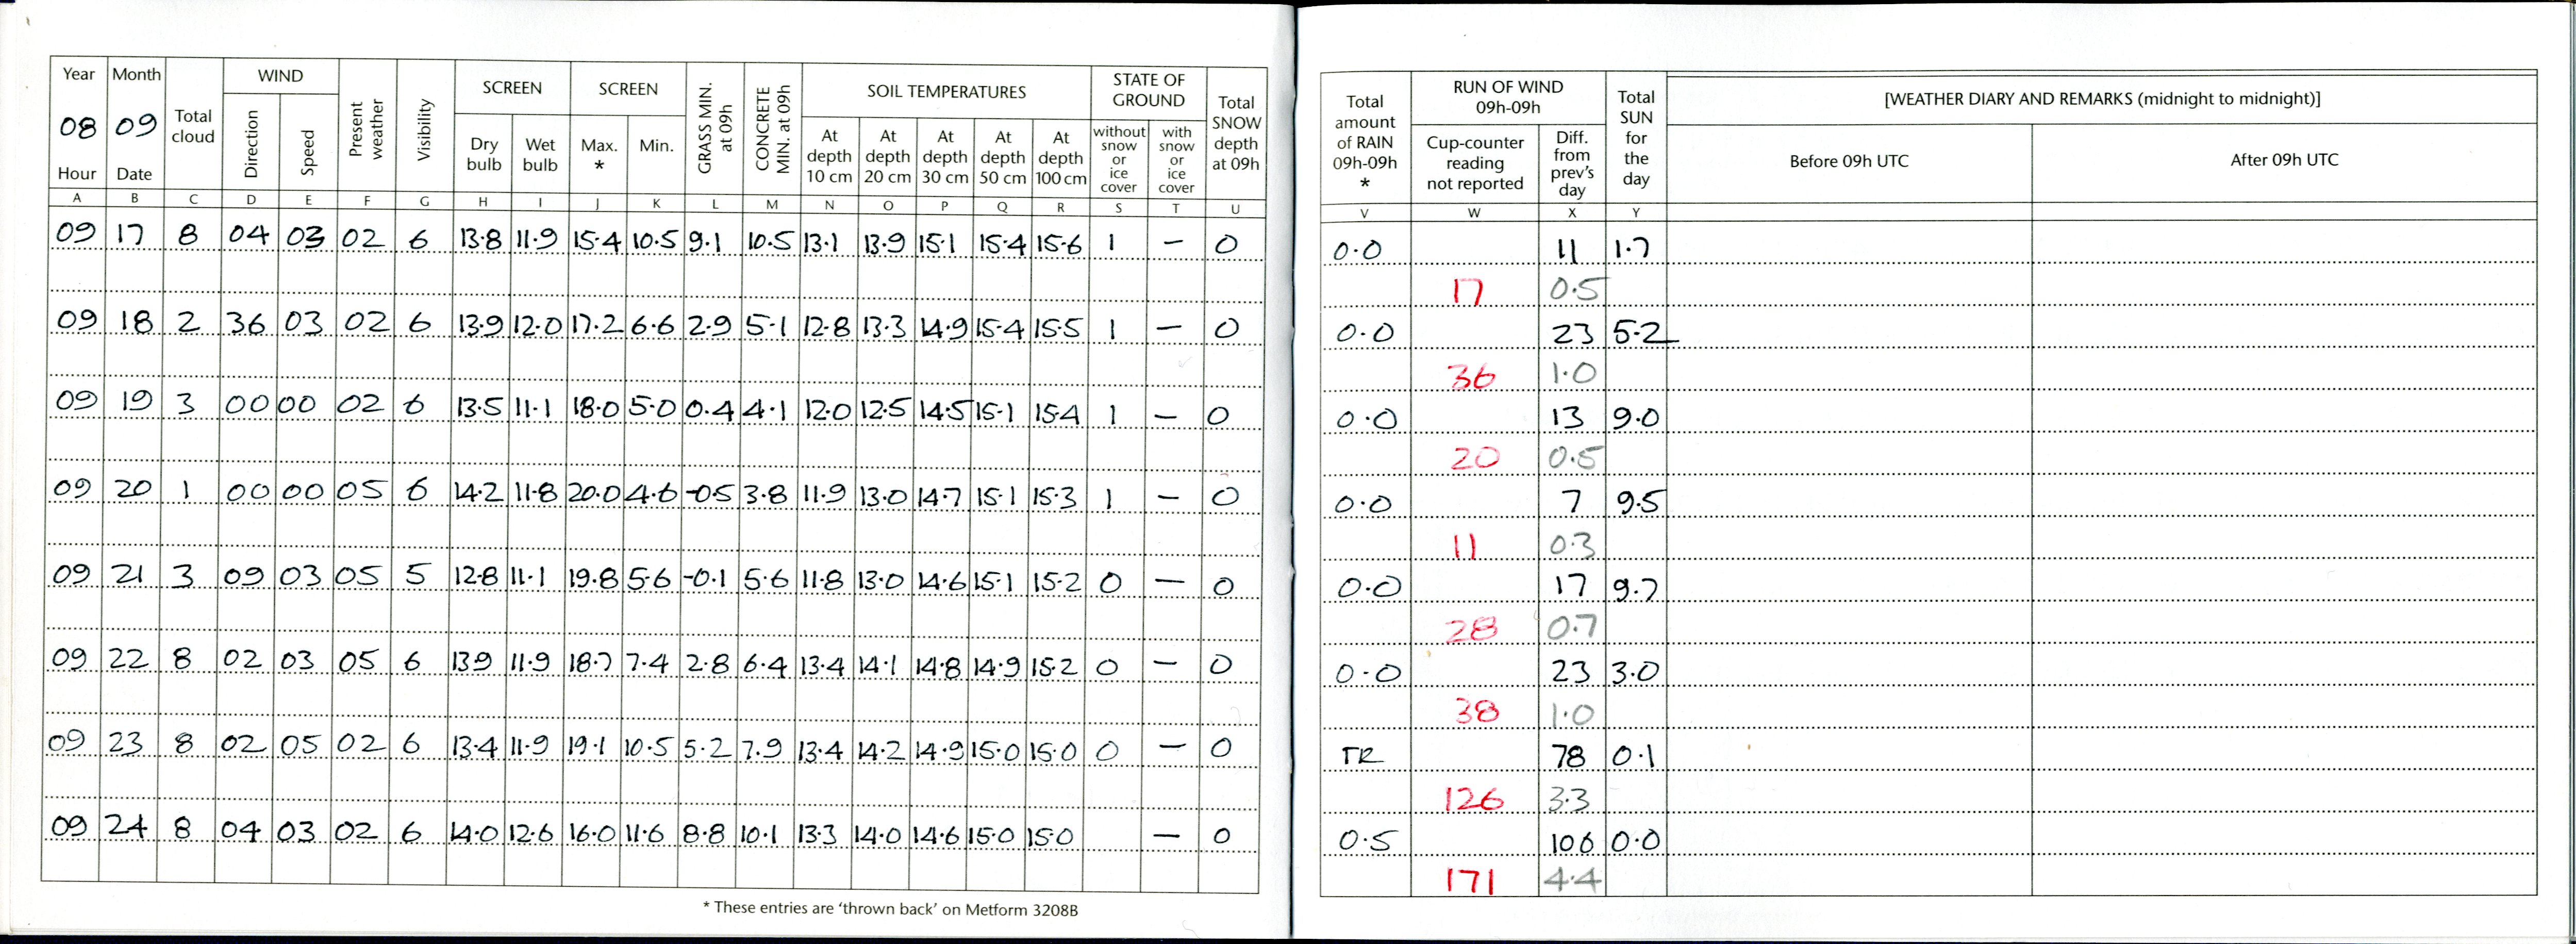 Year Month Total cloud WIND Present weather Visibility SCREEN SCREEN GRASS MIN. at 09h CONCRETE MIN. at 09h SOIL TEMPERATURES STATE OF GROUND Total SNOW depth at 09h
08 09 Direction Speed Dry bulb Wet bulb Max. * Min. At depth 10 cm At depth 20 cm At depth 30 cm At depth 50 cm At depth 100 cm without snow or ice cover with snow or ice cover
Hour Date
A B C D E F G H I J K L M N O P Q R S T U
09 17 8 04 03 02 6 13.8 11.9 15.4 10.5 9.1 10.5 13.1 13.9 15.1 15.4 15.6 1 – 0
09 18 2 36 03 02 6 13.9 12.0 17.2 6.6 2.9 5.1 12.8 13.3 14.9 15.4 15.5 1 – 0
09 19 3 00 00 02 6 13.5 11.1 18.0 5.0 0.4 4.1 12.0 12.5 14.5 15.1 15.4 1 – 0
09 20 1 00 00 05 6 14.2 11.8 20.0 4.6 -0.5 3.8 11.9 13.0 14.7 15.1 15.3 1 – 0
09 21 3 09 03 05 5 12.8 11.1 19.8 5.6 -0.1 5.6 11.8 13.0 14.6 15.1 15.2 0 – 0
09 22 8 02 03 05 6 13.9 11.9 18.7 7.4 2.8 6.4 13.4 14.1 14.8 14.9 15.2 0 – 0
09 23 8 02 05 02 6 13.4 11.9 19.1 10.5 5.2 7.9 13.4 14.2 14.9 15.0 15.0 0 – 0
09 24 8 04 03 02 6 14.0 12.6 16.0 11.6 8.8 10.1 13.3 14.0 14.6 15.0 15.0 – 0
* These entries are ‘thrown back’ on Metform 3208B
Total amount of RAIN 09h-09h * RUN OF WIND 09h-09h Total SUN for the day [WEATHER DIARY AND REMARKS (midnight to midnight)]
Cup-counter reading not reported Diff. from prev's day Before 09h UTC After 09h UTC
V W X Y
0.0 11 1.7
17 0.5
0.0 23 5.2
36 1.0
0.0 13 9.0
20 0.5
0.0 7 9.5
11 0.3
0.0 17 9.7
28 0.7
0.0 23 3.0
38 1.0
TR 78 0.1
126 3.3
0.5 106 0.0
171 4.4